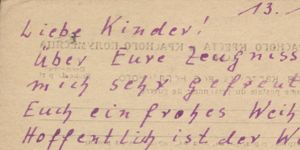 13.
Liebe Kinder!
Über Eure Zeugniss
mich sehr gefreut
Euch ein frohes Weih
Hoffentlich ist der W
КРЕСТА КРАСНОГО ПОЛУМЕСЯЦА